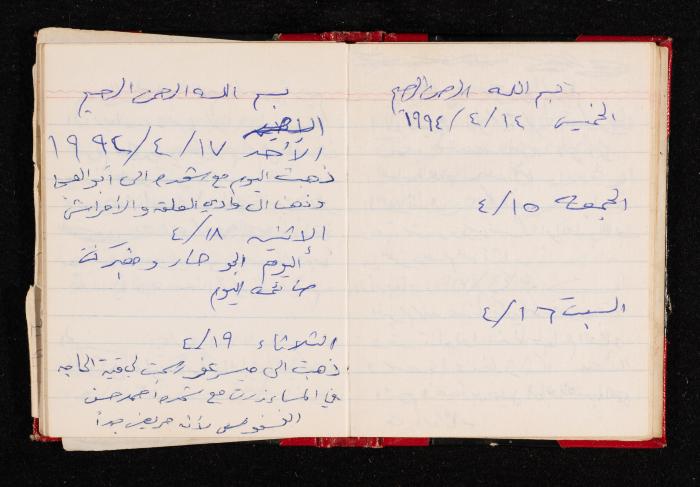 بسم الله الرحمن الرحيم
الخميس ١٩٩٤/٤/١٤
الجمعه ٤/١٥
السبت ٤/١٦
بسم الله الرحمن الرحيم
الأحد ١٩٩٤/٤/١٧
ذهبت اليوم مع الى ابو
وذهنا الى وادي العلقه و
الاثنين ٤/١٨
اليوم الجو حار و كنت
صائمه اليوم
الثلاثاء ٤/١٩
ذهبت الى الحاجه
في المساء زرت مع احمد حسن
لأنه مريض جداً